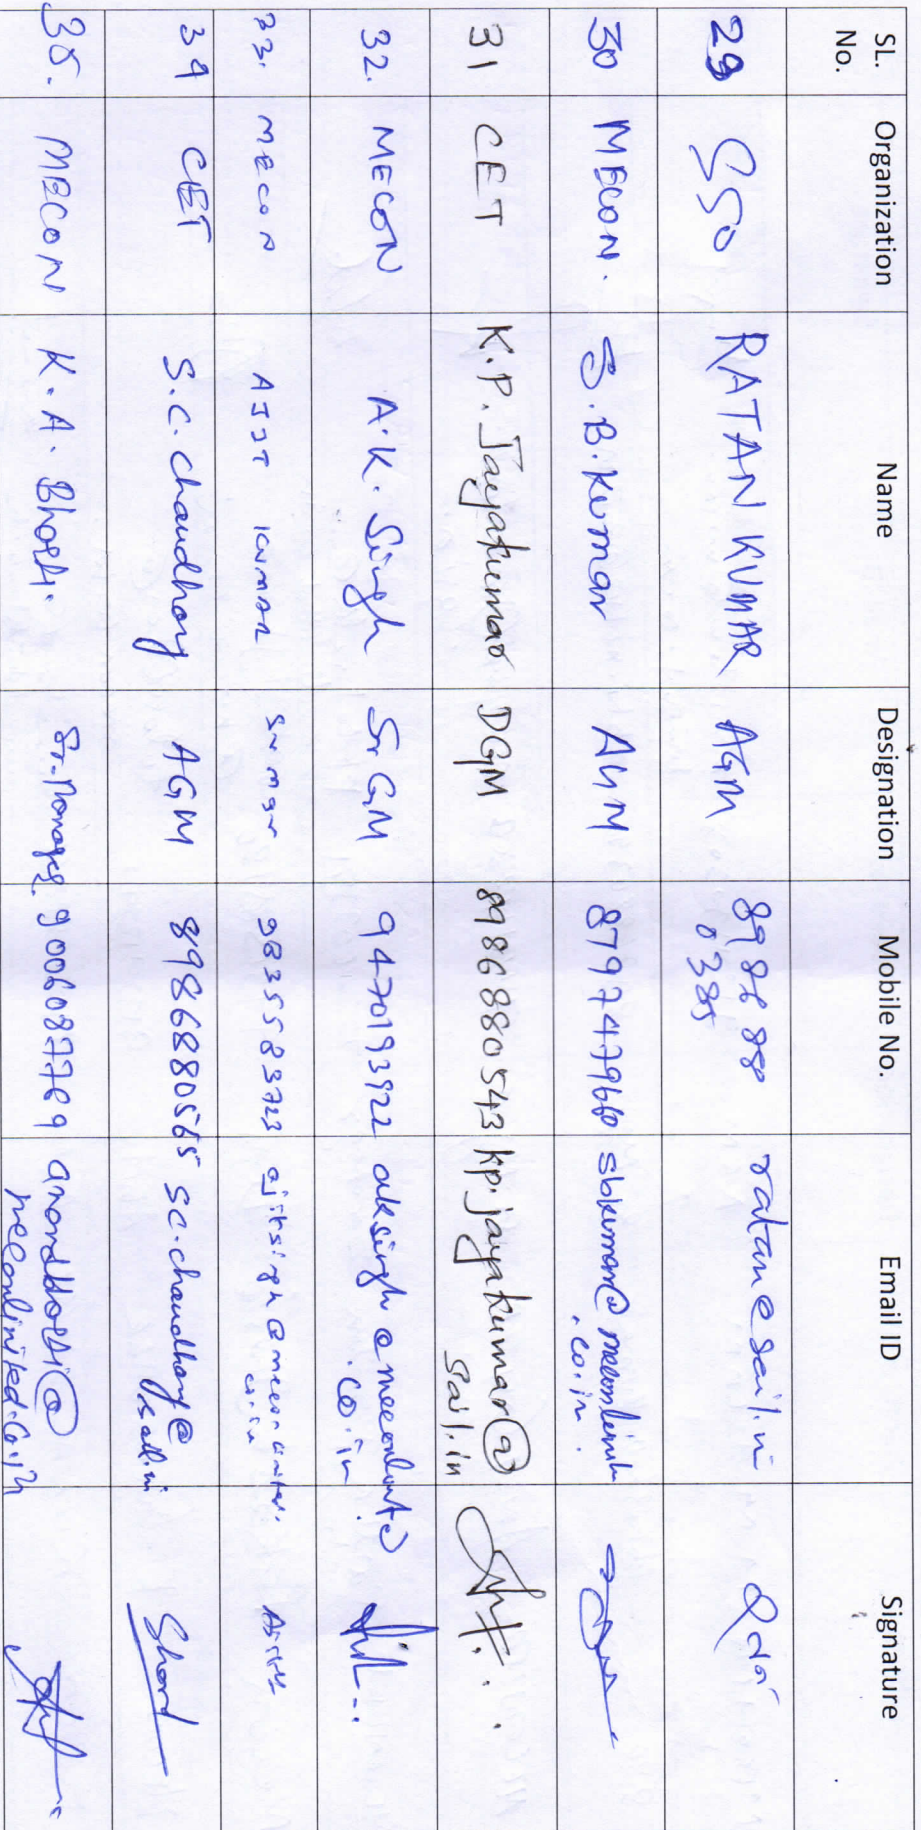 SL. No. Organization Name Designation Mobile No. Email ID Signature
29 SSO RATAN KUMAR AGM 89868 80385 ratan@sail.in
30 MECON. S.B.Kumar AGM 8797479660 sbkumar@meconlimited.co.in
31 CET K.P. Jayakumar DGM 8986880543 kp.jayakumar@sail.in
32. MECON A.K. Singh Sr GM 9470193922 aksingh@meconlimited.co.in
33. MECON AJIT KUMAR 9835583723
34 CET S.C. Chaudhary AGM 8986880565 sc.chaudhary@sail.in
35. MECON K. A. Sr. Manager 9006087769